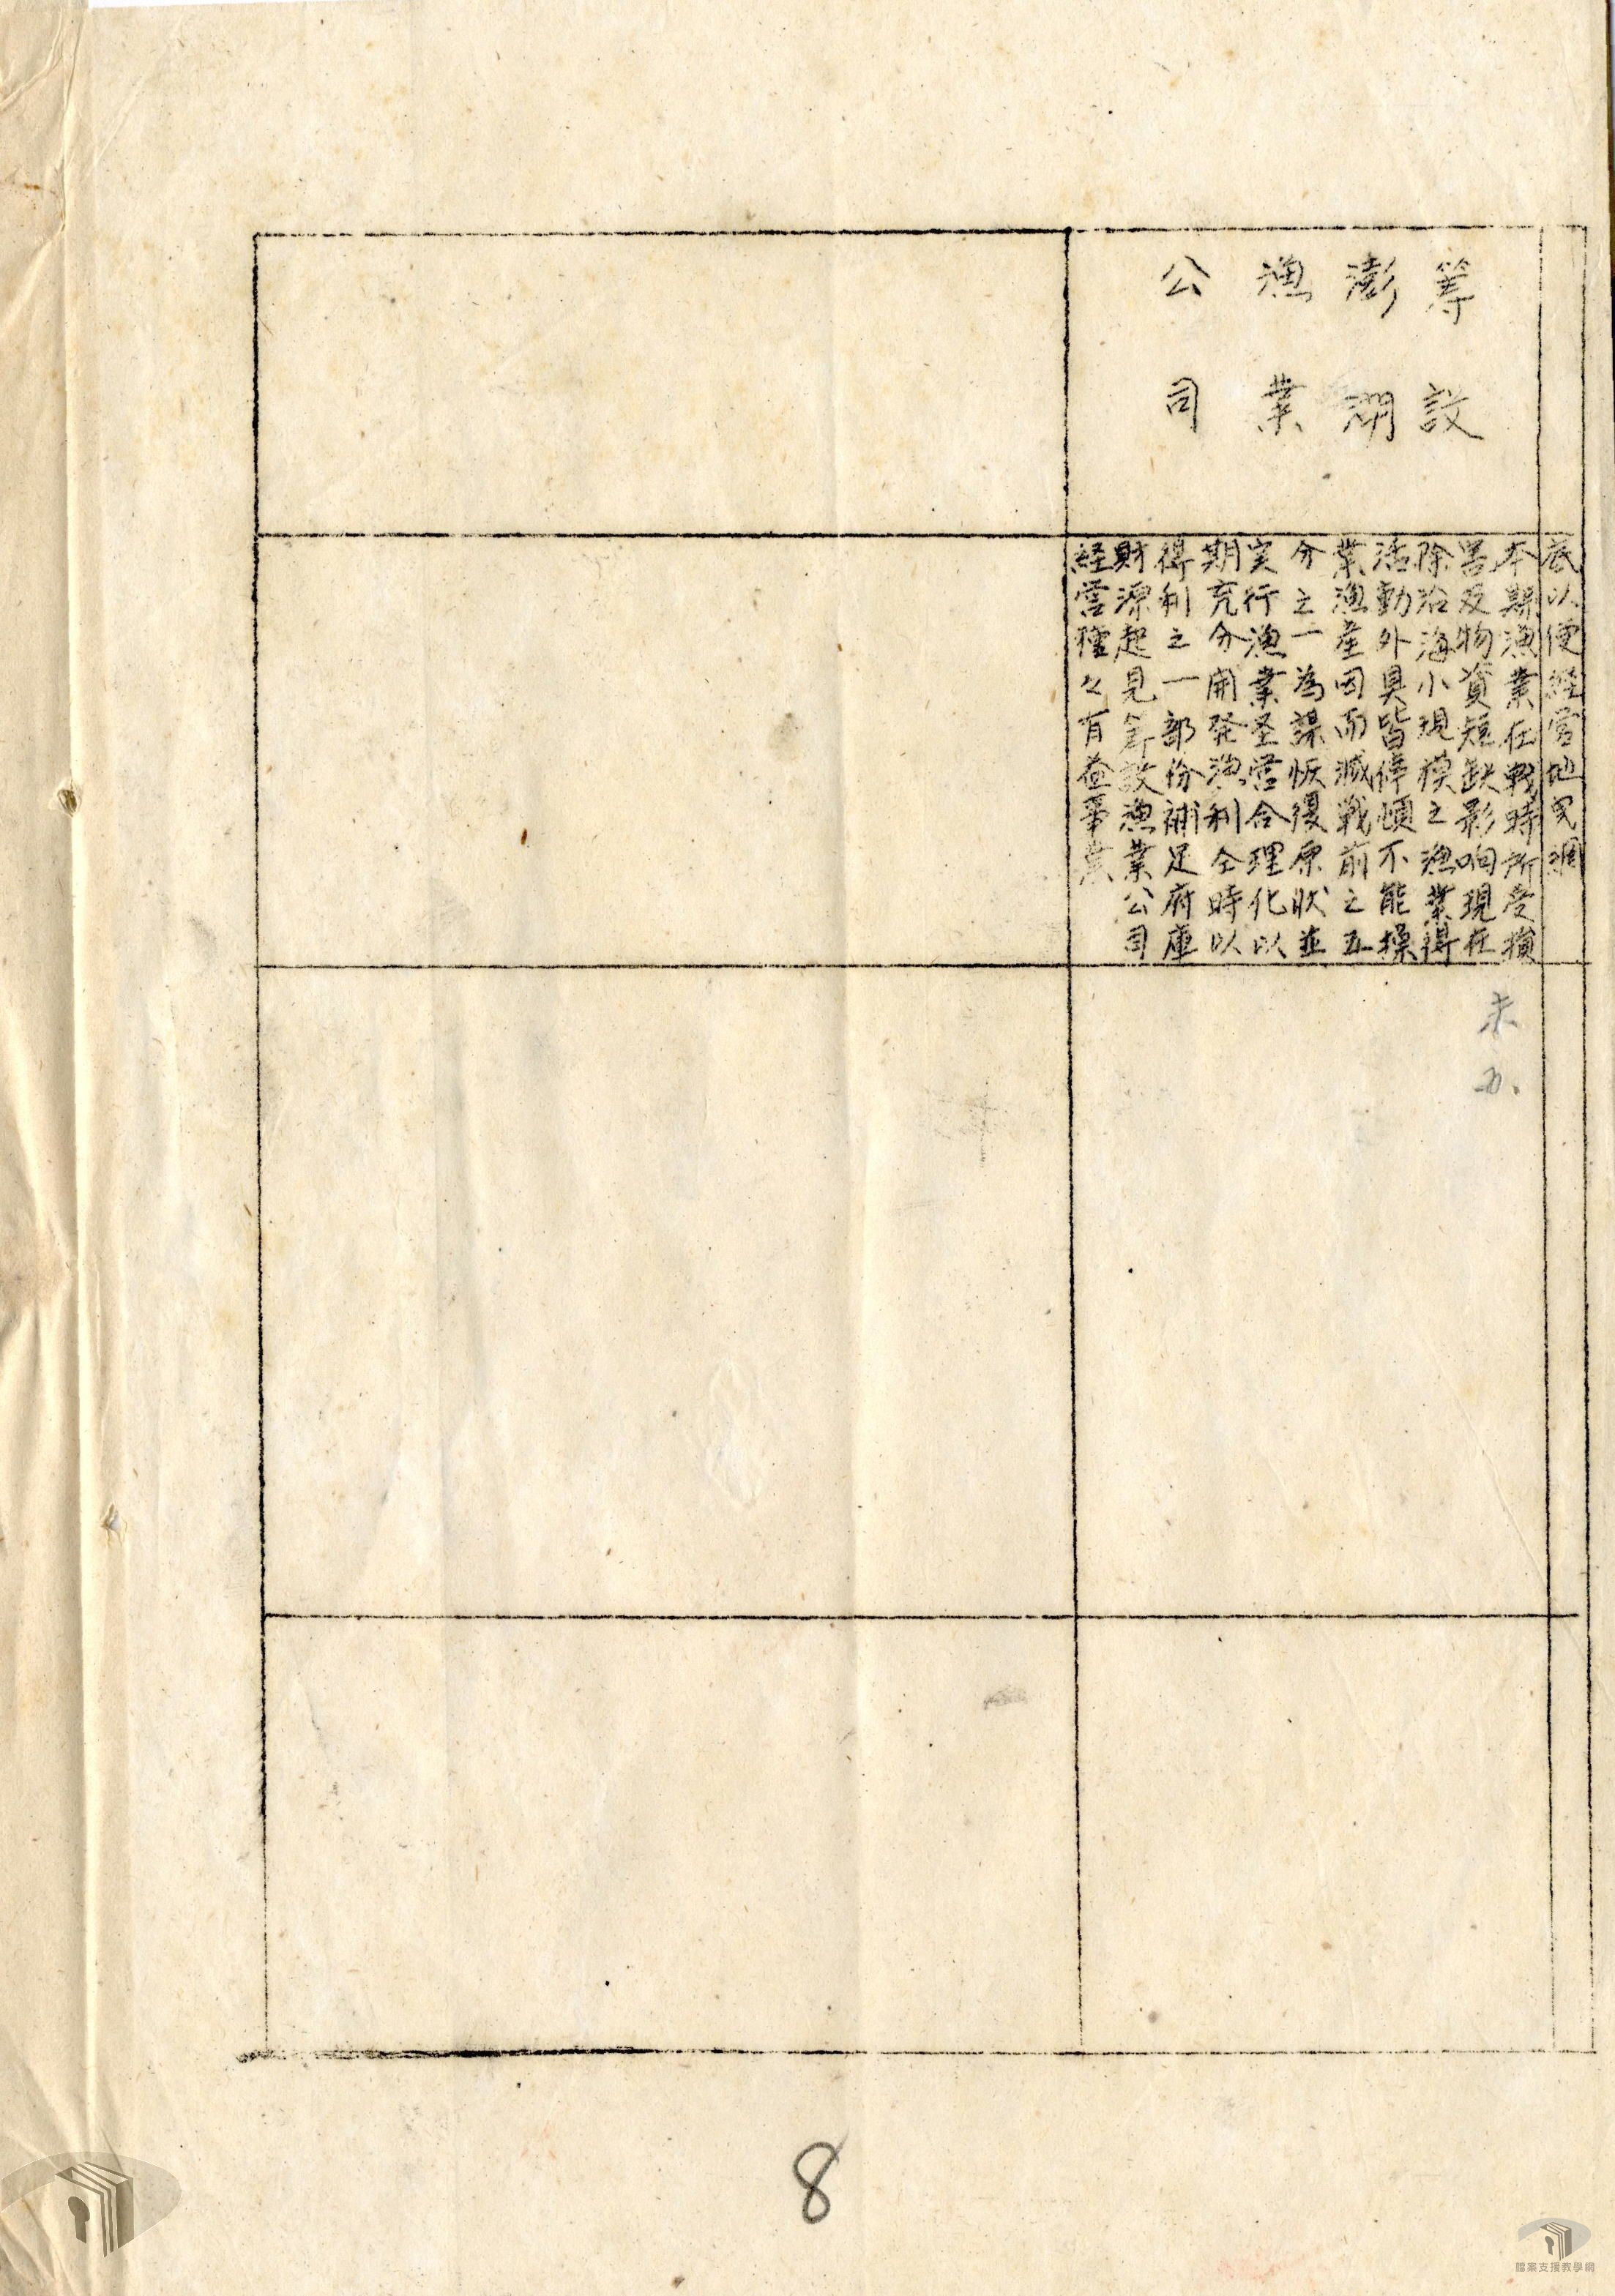 底以便経営地曳網
籌設
澎湖
漁業
公司
本縣漁業在戦時所受損
害及物資短缺影响現在
除沿海小規模之漁業得
活動外具皆停頓不能操
業漁產因而減戦前之五
分之一為謀恢復原狀並
实行漁業圣営合理化以
期充分開発漁利仝時以
得利之一部份補足府庫
財源起見籌設漁業公司
経営種々有益事業
未办.
8
檔案支援教學網